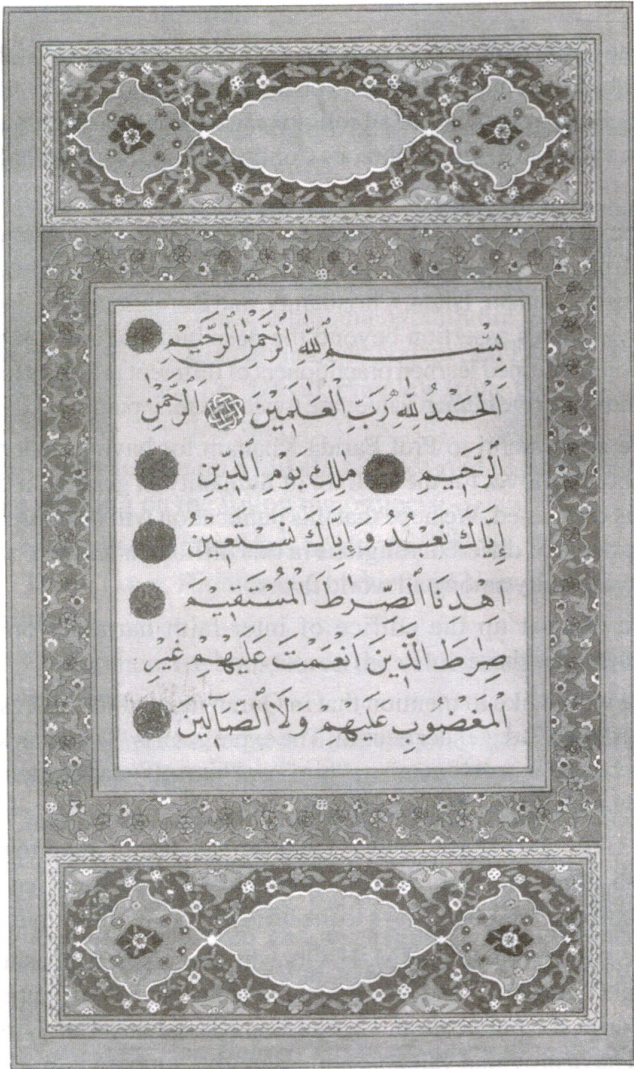 بِسْمِ اللّٰهِ الرَّحْمٰنِ الرَّحِيمِ
اَلْحَمْدُ لِلّٰهِ رَبِّ الْعَالَمِينَ اَلرَّحْمٰنِ
الرَّحِيمِ مٰلِكِ يَوْمِ الدِّينِ
إِيَّاكَ نَعْبُدُ وَإِيَّاكَ نَسْتَعِينُ
اِهْدِنَا الصِّرٰطَ الْمُسْتَقِيمَ
صِرٰطَ الَّذِينَ اَنْعَمْتَ عَلَيْهِمْ غَيْرِ
الْمَغْضُوبِ عَلَيْهِمْ وَلَا الضَّآلِّينَ